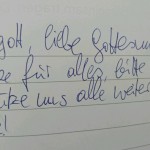 gott, liebe Gottesm
ke für alles, bitte
ütze uns alle weiter
!